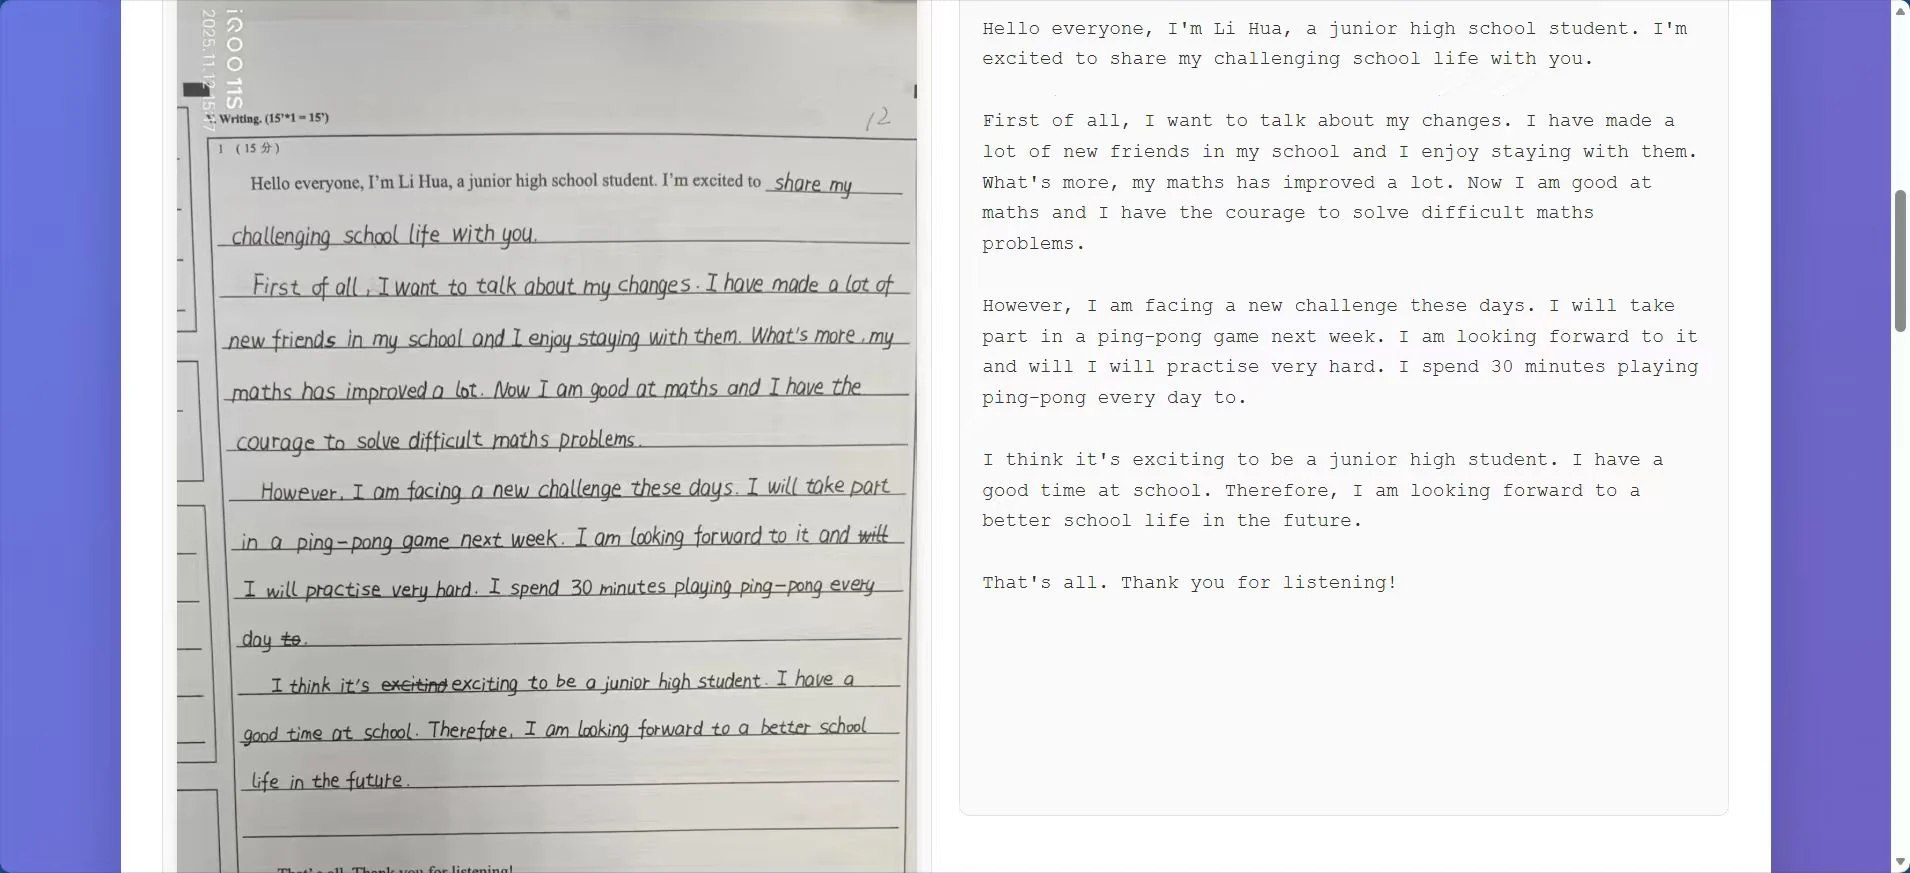 iQOO 11S
2025.11.12 15:47
Writing. (15'*1 = 15')
12
1 ( 15 分 )
Hello everyone, I'm Li Hua, a junior high school student. I'm excited to share my
challenging school life with you.
First of all, I want to talk about my changes. I have made a lot of
new friends in my school and I enjoy staying with them. What's more, my
maths has improved a lot. Now I am good at maths and I have the
courage to solve difficult maths problems.
However, I am facing a new challenge these days. I will take part
in a ping-pong game next week. I am looking forward to it and will
I will practise very hard. I spend 30 minutes playing ping-pong every
day to.
I think it's exciting exciting to be a junior high student. I have a
good time at school. Therefore, I am looking forward to a better school
life in the future.
That's all. Thank you for listening!
Hello everyone, I'm Li Hua, a junior high school student. I'm
excited to share my challenging school life with you.
First of all, I want to talk about my changes. I have made a
lot of new friends in my school and I enjoy staying with them.
What's more, my maths has improved a lot. Now I am good at
maths and I have the courage to solve difficult maths
problems.
However, I am facing a new challenge these days. I will take
part in a ping-pong game next week. I am looking forward to it
and will I will practise very hard. I spend 30 minutes playing
ping-pong every day to.
I think it's exciting to be a junior high student. I have a
good time at school. Therefore, I am looking forward to a
better school life in the future.
That's all. Thank you for listening!